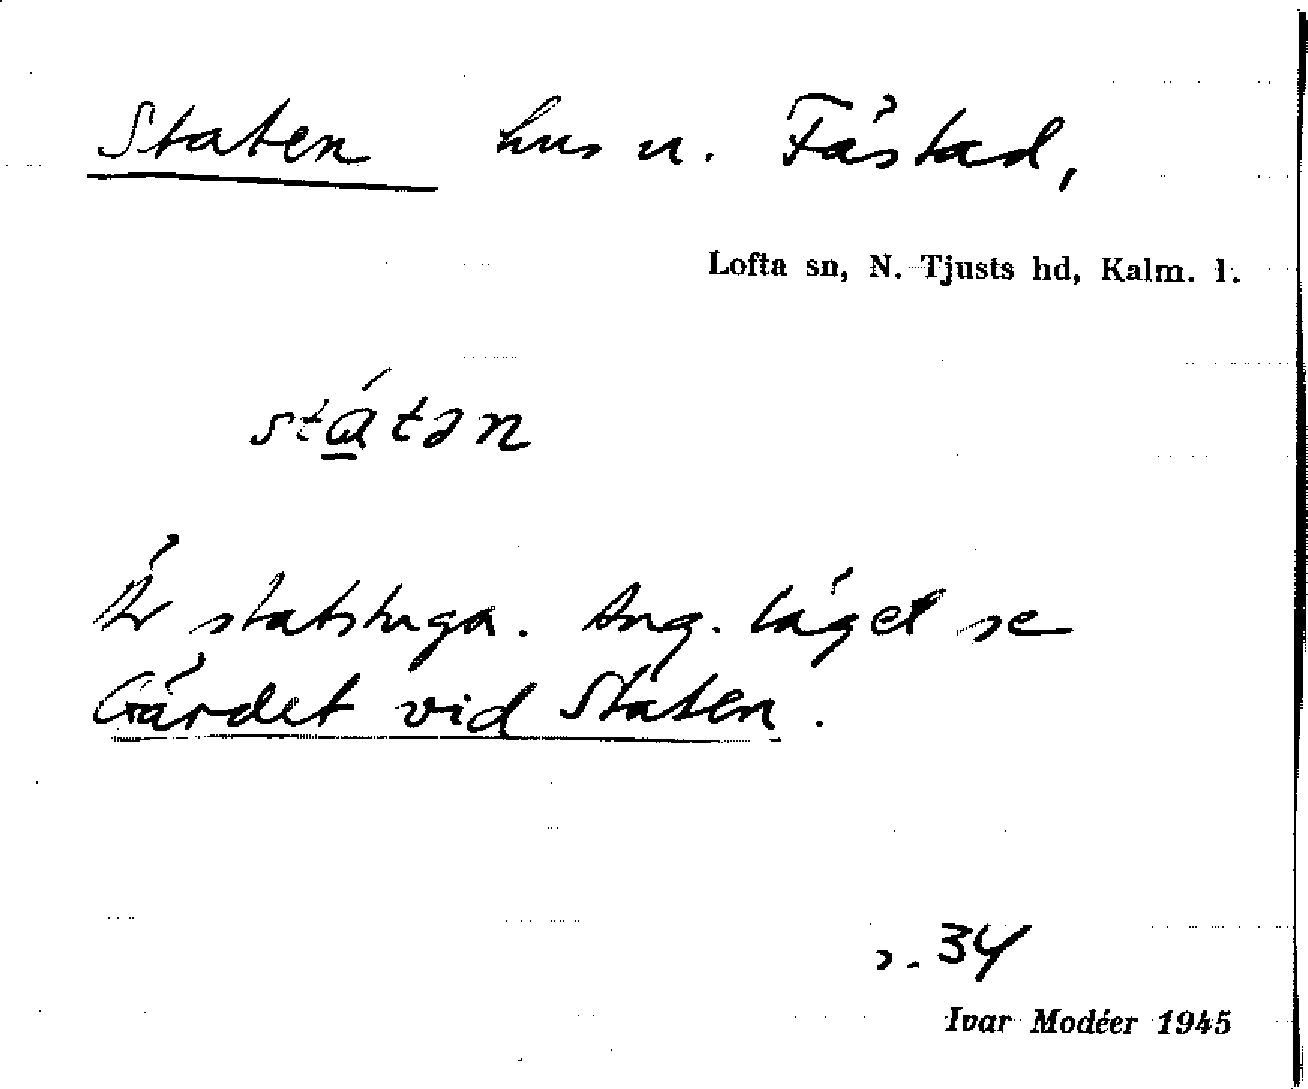 Staten hus u. Fästad,
Lofta sn, N. Tjusts hd, Kalm. l.
státən
Är statstuga. Ang. läget se
Gärdet vid Staten.
s. 34
Ivar Modéer 1945